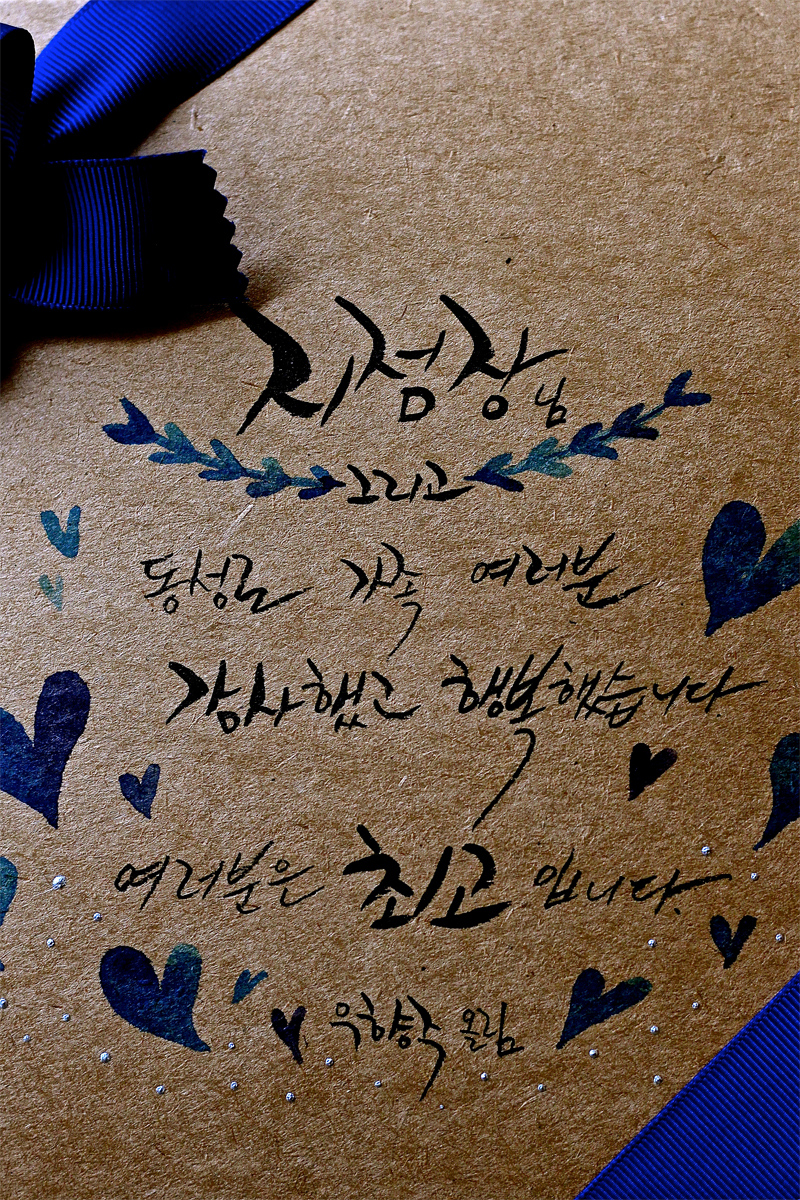 지점장님
그리고
동성로 가족 여러분
감사했고 행복했습니다.
여러분은 최고입니다.
우향숙 올림